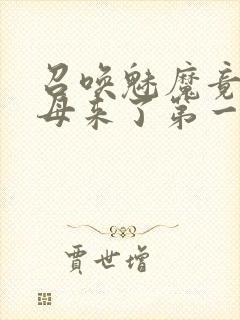 召唤魅魔竟
母来了第一
贾世增